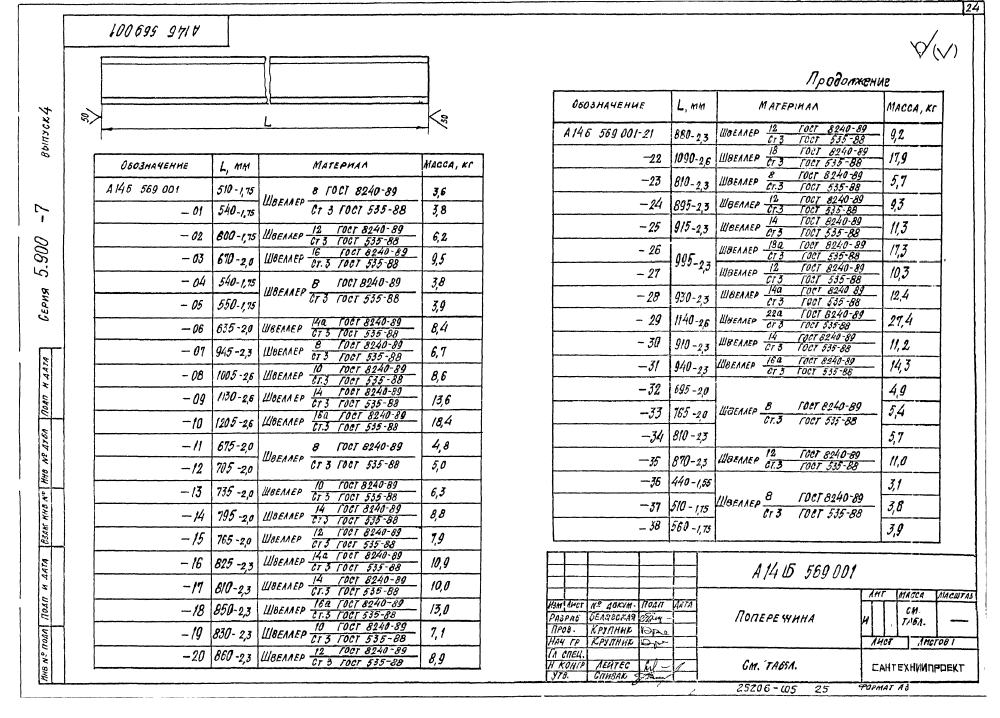 24
А14Б 569001
√(√)
50
50
L
Серия 5.900-7 выпуск 4
Обозначение L, мм Материал Масса, кг
А14Б 569 001 510-1,75 Швеллер 8 ГОСТ 8240-89 / Ст 3 ГОСТ 535-88 3,6
-01 540-1,75 3,8
-02 800-1,75 Швеллер 12 ГОСТ 8240-89 / Ст 3 ГОСТ 535-88 6,2
-03 670-2,0 Швеллер 16 ГОСТ 8240-89 / Ст.3 ГОСТ 535-88 9,5
-04 540-1,75 Швеллер 8 ГОСТ 8240-89 / Ст 3 ГОСТ 535-88 3,8
-05 550-1,75 3,9
-06 635-2,0 Швеллер 14а ГОСТ 8240-89 / Ст 3 ГОСТ 535-88 8,4
-07 945-2,3 Швеллер 8 ГОСТ 8240-89 / Ст 3 ГОСТ 535-88 6,7
-08 1005-2,6 Швеллер 10 ГОСТ 8240-89 / Ст.3 ГОСТ 535-88 8,6
-09 1130-2,6 Швеллер 14 ГОСТ 8240-89 / Ст 3 ГОСТ 535-88 13,6
-10 1205-2,6 Швеллер 16а ГОСТ 8240-89 / Ст.3 ГОСТ 535-88 18,4
-11 675-2,0 Швеллер 8 ГОСТ 8240-89 / Ст 3 ГОСТ 535-88 4,8
-12 705-2,0 5,0
-13 735-2,0 Швеллер 10 ГОСТ 8240-89 / Ст 3 ГОСТ 535-88 6,3
-14 795-2,0 Швеллер 14 ГОСТ 8240-89 / Ст 3 ГОСТ 535-88 8,8
-15 765-2,0 Швеллер 12 ГОСТ 8240-89 / Ст 3 ГОСТ 535-88 7,9
-16 825-2,3 Швеллер 14а ГОСТ 8240-89 / Ст 3 ГОСТ 535-88 10,9
-17 810-2,3 Швеллер 14 ГОСТ 8240-89 / Ст 3 ГОСТ 535-88 10,0
-18 850-2,3 Швеллер 16а ГОСТ 8240-89 / Ст 3 ГОСТ 535-88 13,0
-19 830-2,3 Швеллер 10 ГОСТ 8240-89 / Ст 3 ГОСТ 535-88 7,1
-20 860-2,3 Швеллер 12 ГОСТ 8240-89 / Ст 3 ГОСТ 535-88 8,9
Продолжение
Обозначение L, мм Материал Масса, кг
А14Б 569 001-21 880-2,3 Швеллер 12 ГОСТ 8240-89 / Ст 3 ГОСТ 535-88 9,2
-22 1090-2,6 Швеллер 18 ГОСТ 8240-89 / Ст 3 ГОСТ 535-88 17,9
-23 810-2,3 Швеллер 8 ГОСТ 8240-89 / Ст.3 ГОСТ 535-88 5,7
-24 895-2,3 Швеллер 12 ГОСТ 8240-89 / Ст.3 ГОСТ 535-88 9,3
-25 915-2,3 Швеллер 14 ГОСТ 8240-89 / Ст 3 ГОСТ 535-88 11,3
-26 995-2,3 Швеллер 18а ГОСТ 8240-89 / Ст 3 ГОСТ 535-88 17,3
-27 Швеллер 12 ГОСТ 8240-89 / Ст 3 ГОСТ 535-88 10,3
-28 930-2,3 Швеллер 14а ГОСТ 8240-89 / Ст 3 ГОСТ 535-88 12,4
-29 1140-2,6 Швеллер 22а ГОСТ 8240-89 / Ст 3 ГОСТ 535-88 27,4
-30 910-2,3 Швеллер 14 ГОСТ 8240-89 / Ст 3 ГОСТ 535-88 11,2
-31 940-2,3 Швеллер 16а ГОСТ 8240-89 / Ст.3 ГОСТ 535-88 14,3
-32 695-2,0 4,9
-33 765-2,0 Швеллер 8 ГОСТ 8240-89 / Ст.3 ГОСТ 535-88 5,4
-34 810-2,3 5,7
-35 870-2,3 Швеллер 12 ГОСТ 8240-89 / Ст.3 ГОСТ 535-88 11,0
-36 440-1,55 3,1
-37 510-1,75 Швеллер 8 ГОСТ 8240-89 / Ст 3 ГОСТ 535-88 3,8
-38 560-1,75 3,9
А14Б 569 001
Изм Лист № докум. Подп Дата
Разраб
Пров. Крупник
Нач гр Крупник
Гл спец.
Н контр Лейтес
Утв. Спивак
Поперечина
См. табл.
Лит Масса Масштаб
И См. табл. —
Лист Листов 1
Сантехниипроект
25206-05 25 Формат А3
Инв № подл Подп и дата Взам инв № Инв № дубл Подп и дата